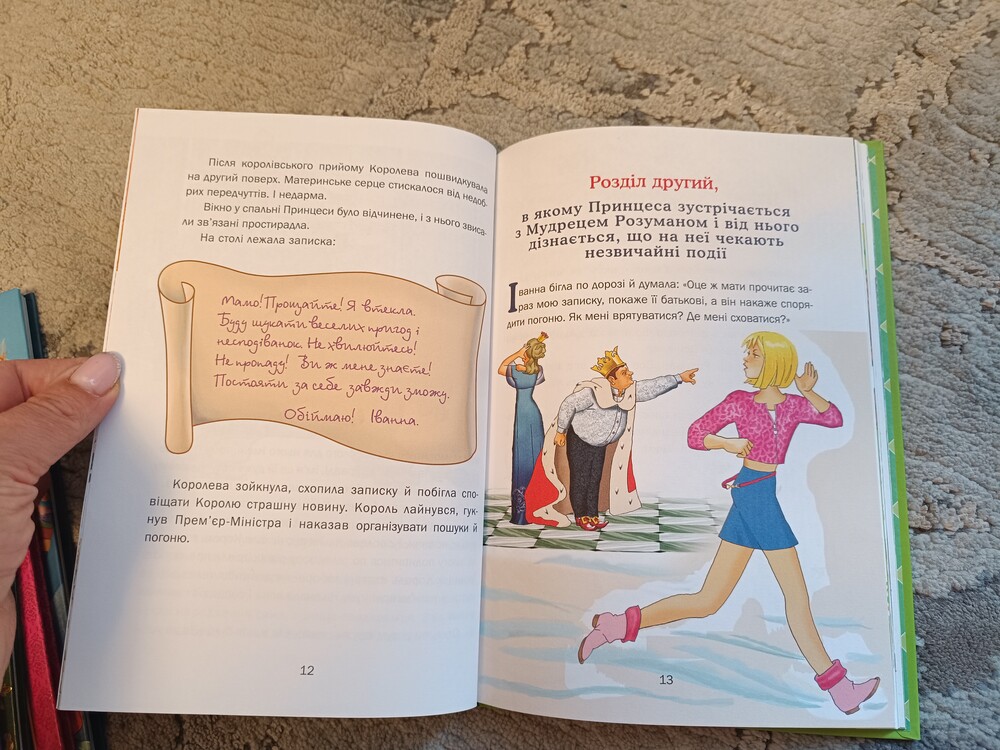 Після королівського прийому Королева пошвидкувала
на другий поверх. Материнське серце стискалося від недоб-
рих передчуттів. І недарма.
Вікно у спальні Принцеси було відчинене, і з нього звиса-
ли зв’язані простирадла.
На столі лежала записка:
Мамо! Прощайте! Я втекла.
Буду шукати веселих пригод і
несподіванок. Не хвилюйтесь!
Не пропаду! Ви ж мене знаєте!
Постояти за себе завжди зможу.
Обіймаю! Іванна.
Королева зойкнула, схопила записку й побігла спо-
віщати Королю страшну новину. Король лайнувся, гук-
нув Прем’єр-Міністра і наказав організувати пошуки й
погоню.
12
Розділ другий,
в якому Принцеса зустрічається
з Мудрецем Розуманом і від нього
дізнається, що на неї чекають
незвичайні події
Іванна бігла по дорозі й думала: «Оце ж мати прочитає за-
раз мою записку, покаже її батькові, а він накаже споря-
дити погоню. Як мені врятуватися? Де мені сховатися?»
13